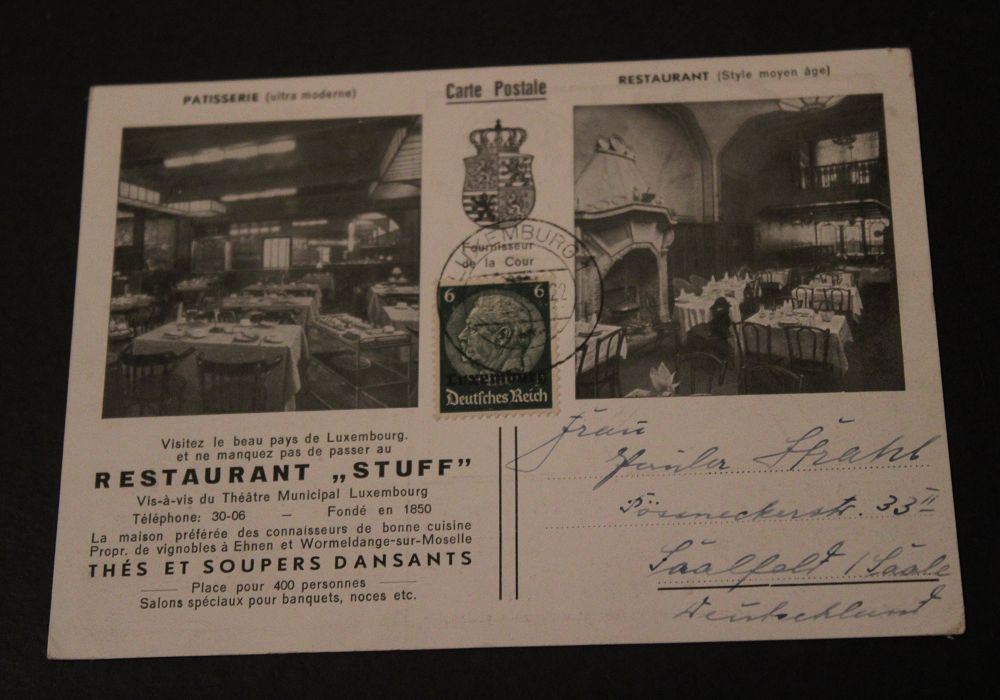 PATISSERIE (ultra moderne)
Carte Postale
RESTAURANT (Style moyen âge)
Fournisseur
de la Cour
LUXEMBURG 1
22
6 6
Luxemburg
Deutsches Reich
Visitez le beau pays de Luxembourg.
et ne manquez pas de passer au
RESTAURANT „STUFF”
Vis-à-vis du Théâtre Municipal Luxembourg
Téléphone: 30-06 — Fondé en 1850
La maison préférée des connaisseurs de bonne cuisine
Propr. de vignobles à Ehnen et Wormeldange-sur-Moselle
THÉS ET SOUPERS DANSANTS
Place pour 400 personnes
Salons spéciaux pour banquets, noces etc.
Frau
Strahl
Pössneckerstr. 33 II
Saalfeld / Saale
Deutschland